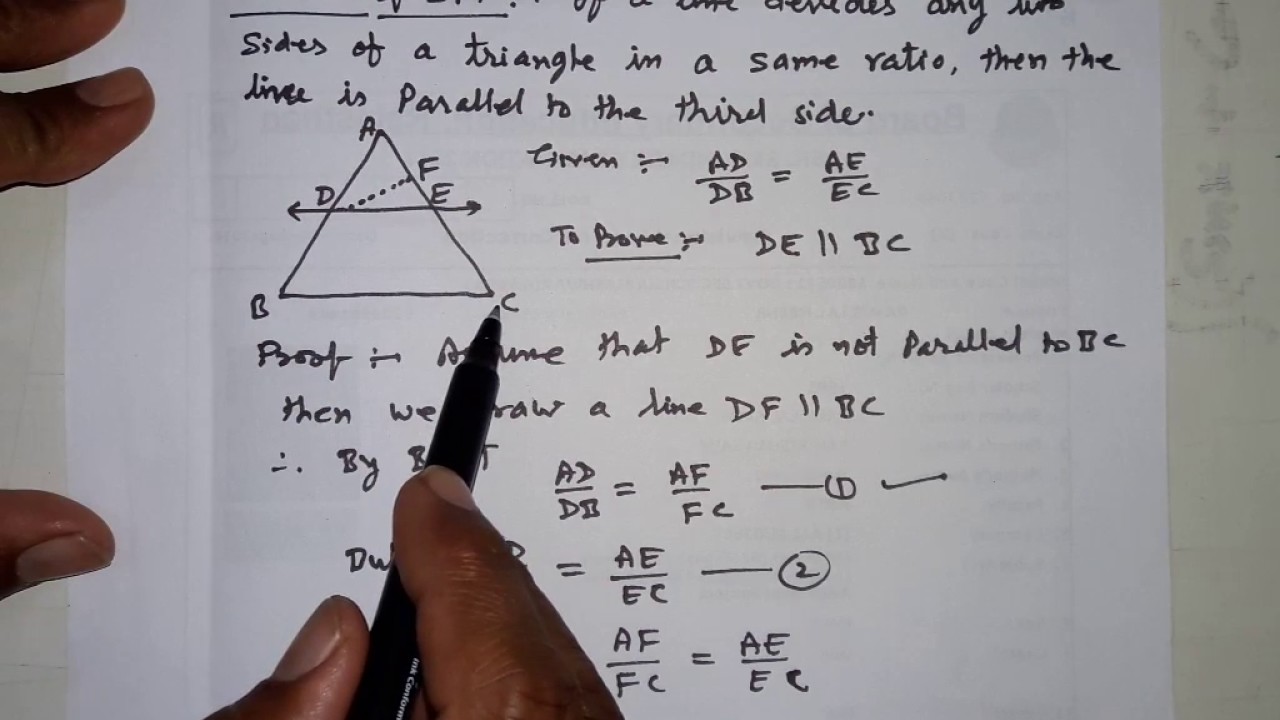 of a line devides any two
Sides of a triangle in a same ratio, then the
line is Parallel to the third side.
A
F
D E
B C
Given :- AD/DB = AE/EC
To Prove :- DE || BC
Proof :- Assume that DE is not Parallel to BC
then we draw a line DF || BC
∴ By
AD/DB = AF/FC —① ✓
= AE/EC —②
AF/FC = AE/EC